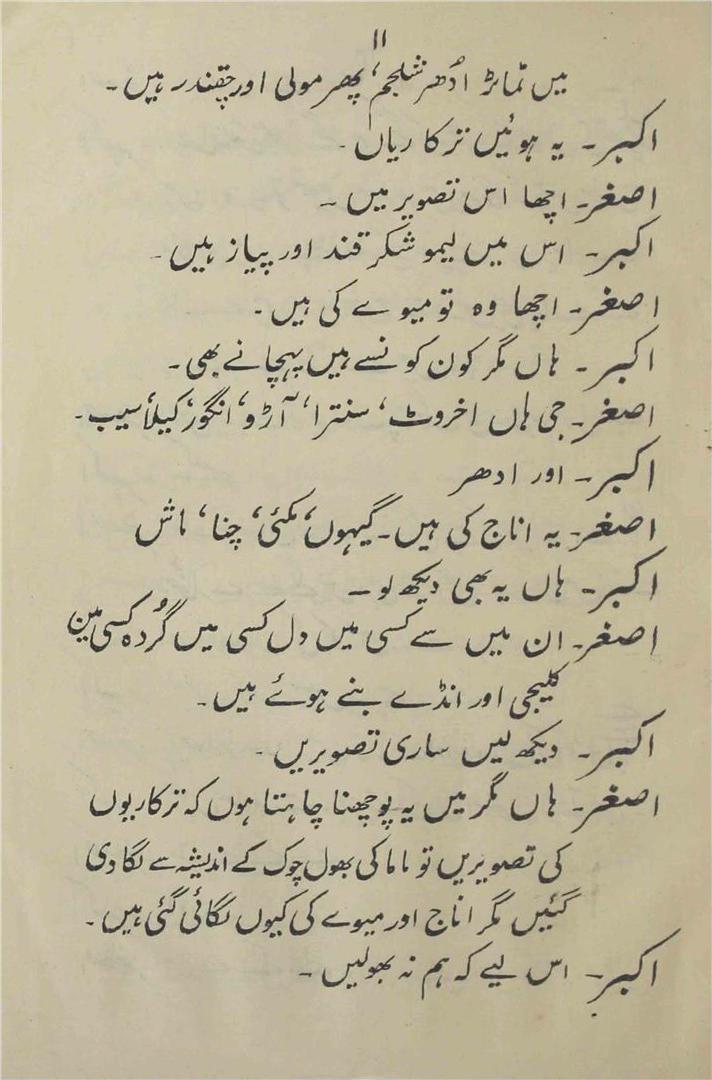 ۱۱
میں ٹماٹر اُدھر شلجم، پھر مولی اور چقندر ہیں۔
اکبر۔ یہ ہوئیں ترکاریاں۔
اصغر۔ اچھا اس تصویر میں ۔
اکبر۔ اس میں لیمو شکر قند اور پیاز ہیں۔
اصغر۔ اچھا وہ تو میوے کی ہیں۔
اکبر۔ ہاں مگر کون کونسے ہیں پہچانے بھی۔
اصغر۔ جی ہاں اخروٹ، سنترا، آڑو، انگور، کیلا، سیب۔
اکبر۔ اور ادھر
اصغر۔ یہ اناج کی ہیں۔ گیہوں، مکئی، چنا، ماش
اکبر۔ ہاں یہ بھی دیکھ لو۔
اصغر۔ ان میں سے کسی میں دل کسی میں گُردہ کسی مین
کلیجی اور انڈے بنے ہوئے ہیں۔
اکبر۔ دیکھ لیں ساری تصویریں۔
اصغر۔ ہاں مگر میں یہ پوچھنا چاہتا ہوں کہ ترکاریوں
کی تصویریں تو ماما کی بھول چوک کے اندیشہ سے لگا دی
گئیں مگر اناج اور میوے کی کیوں لگائی گئی ہیں۔
اکبر۔ اس لیے کہ ہم نہ بھولیں۔